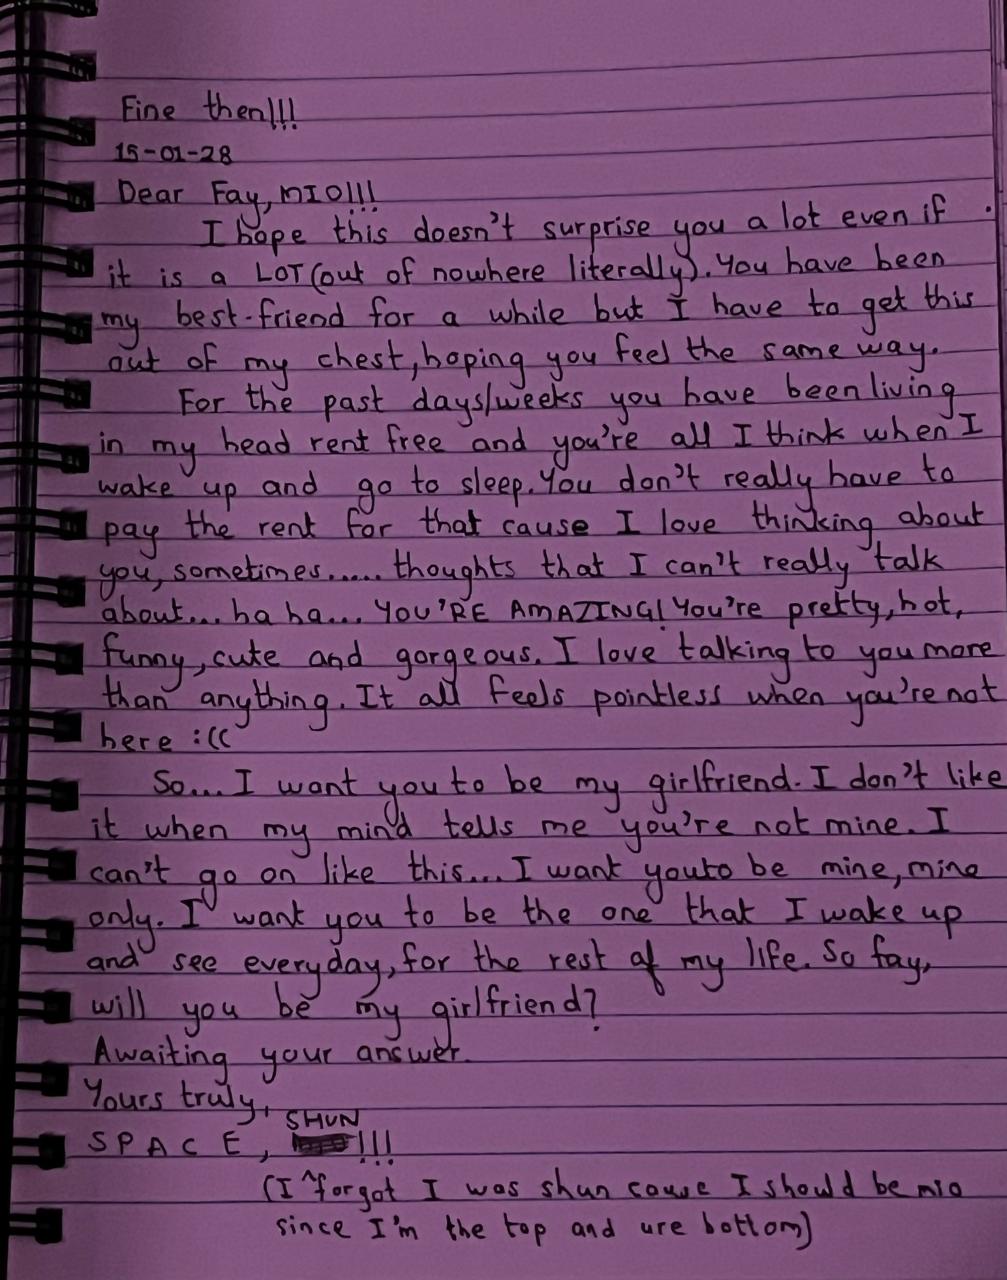 Fine then!!!
15-01-28
Dear Fay, MIO!!!
I hope this doesn't surprise you a lot even if
it is a LOT (out of nowhere literally). You have been
my best-friend for a while but I have to get this
out of my chest, hoping you feel the same way.
For the past days/weeks you have been living
in my head rent free and you're all I think when I
wake up and go to sleep. You don't really have to
pay the rent for that cause I love thinking about
you, sometimes..... thoughts that I can't really talk
about... ha ha... YOU'RE AMAZING! You're pretty, hot,
funny, cute and gorgeous. I love talking to you more
than anything. It all feels pointless when you're not
here :((
So... I want you to be my girlfriend. I don't like
it when my mind tells me you're not mine. I
can't go on like this... I want you to be mine, mine
only. I want you to be the one that I wake up
and see everyday, for the rest of my life. So fay,
will you be my girlfriend?
Awaiting your answer.
Yours truly,
SHUN
S P A C E, !!!
(I forgot I was shun cause I should be mio
since I'm the top and ure bottom)